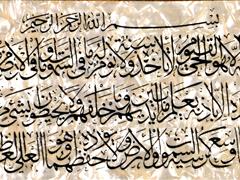 بسم الله الرحمن الرحيم
اله الا هو الحي القيوم لا تأخذه سنة ولا نوم له ما في السموات وما في الارض
الا باذنه يعلم ما بين ايديهم وما خلفهم ولا يحيطون بشيء
وسع كرسيه السموات والارض ولا يؤده حفظهما وهو العلي